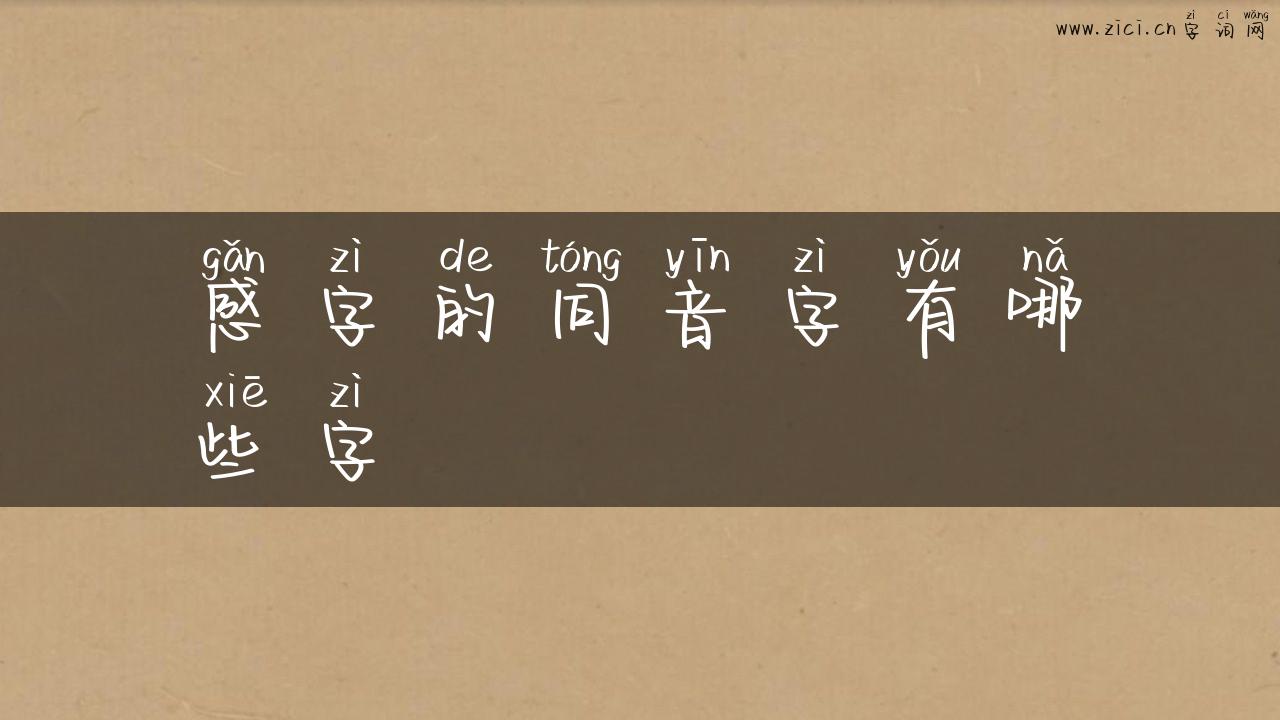 zì cí wǎng
www.zici.cn 字 词 网
gǎn zì de tóng yīn zì yǒu nǎ
感 字 的 同 音 字 有 哪
xiē zì
些 字